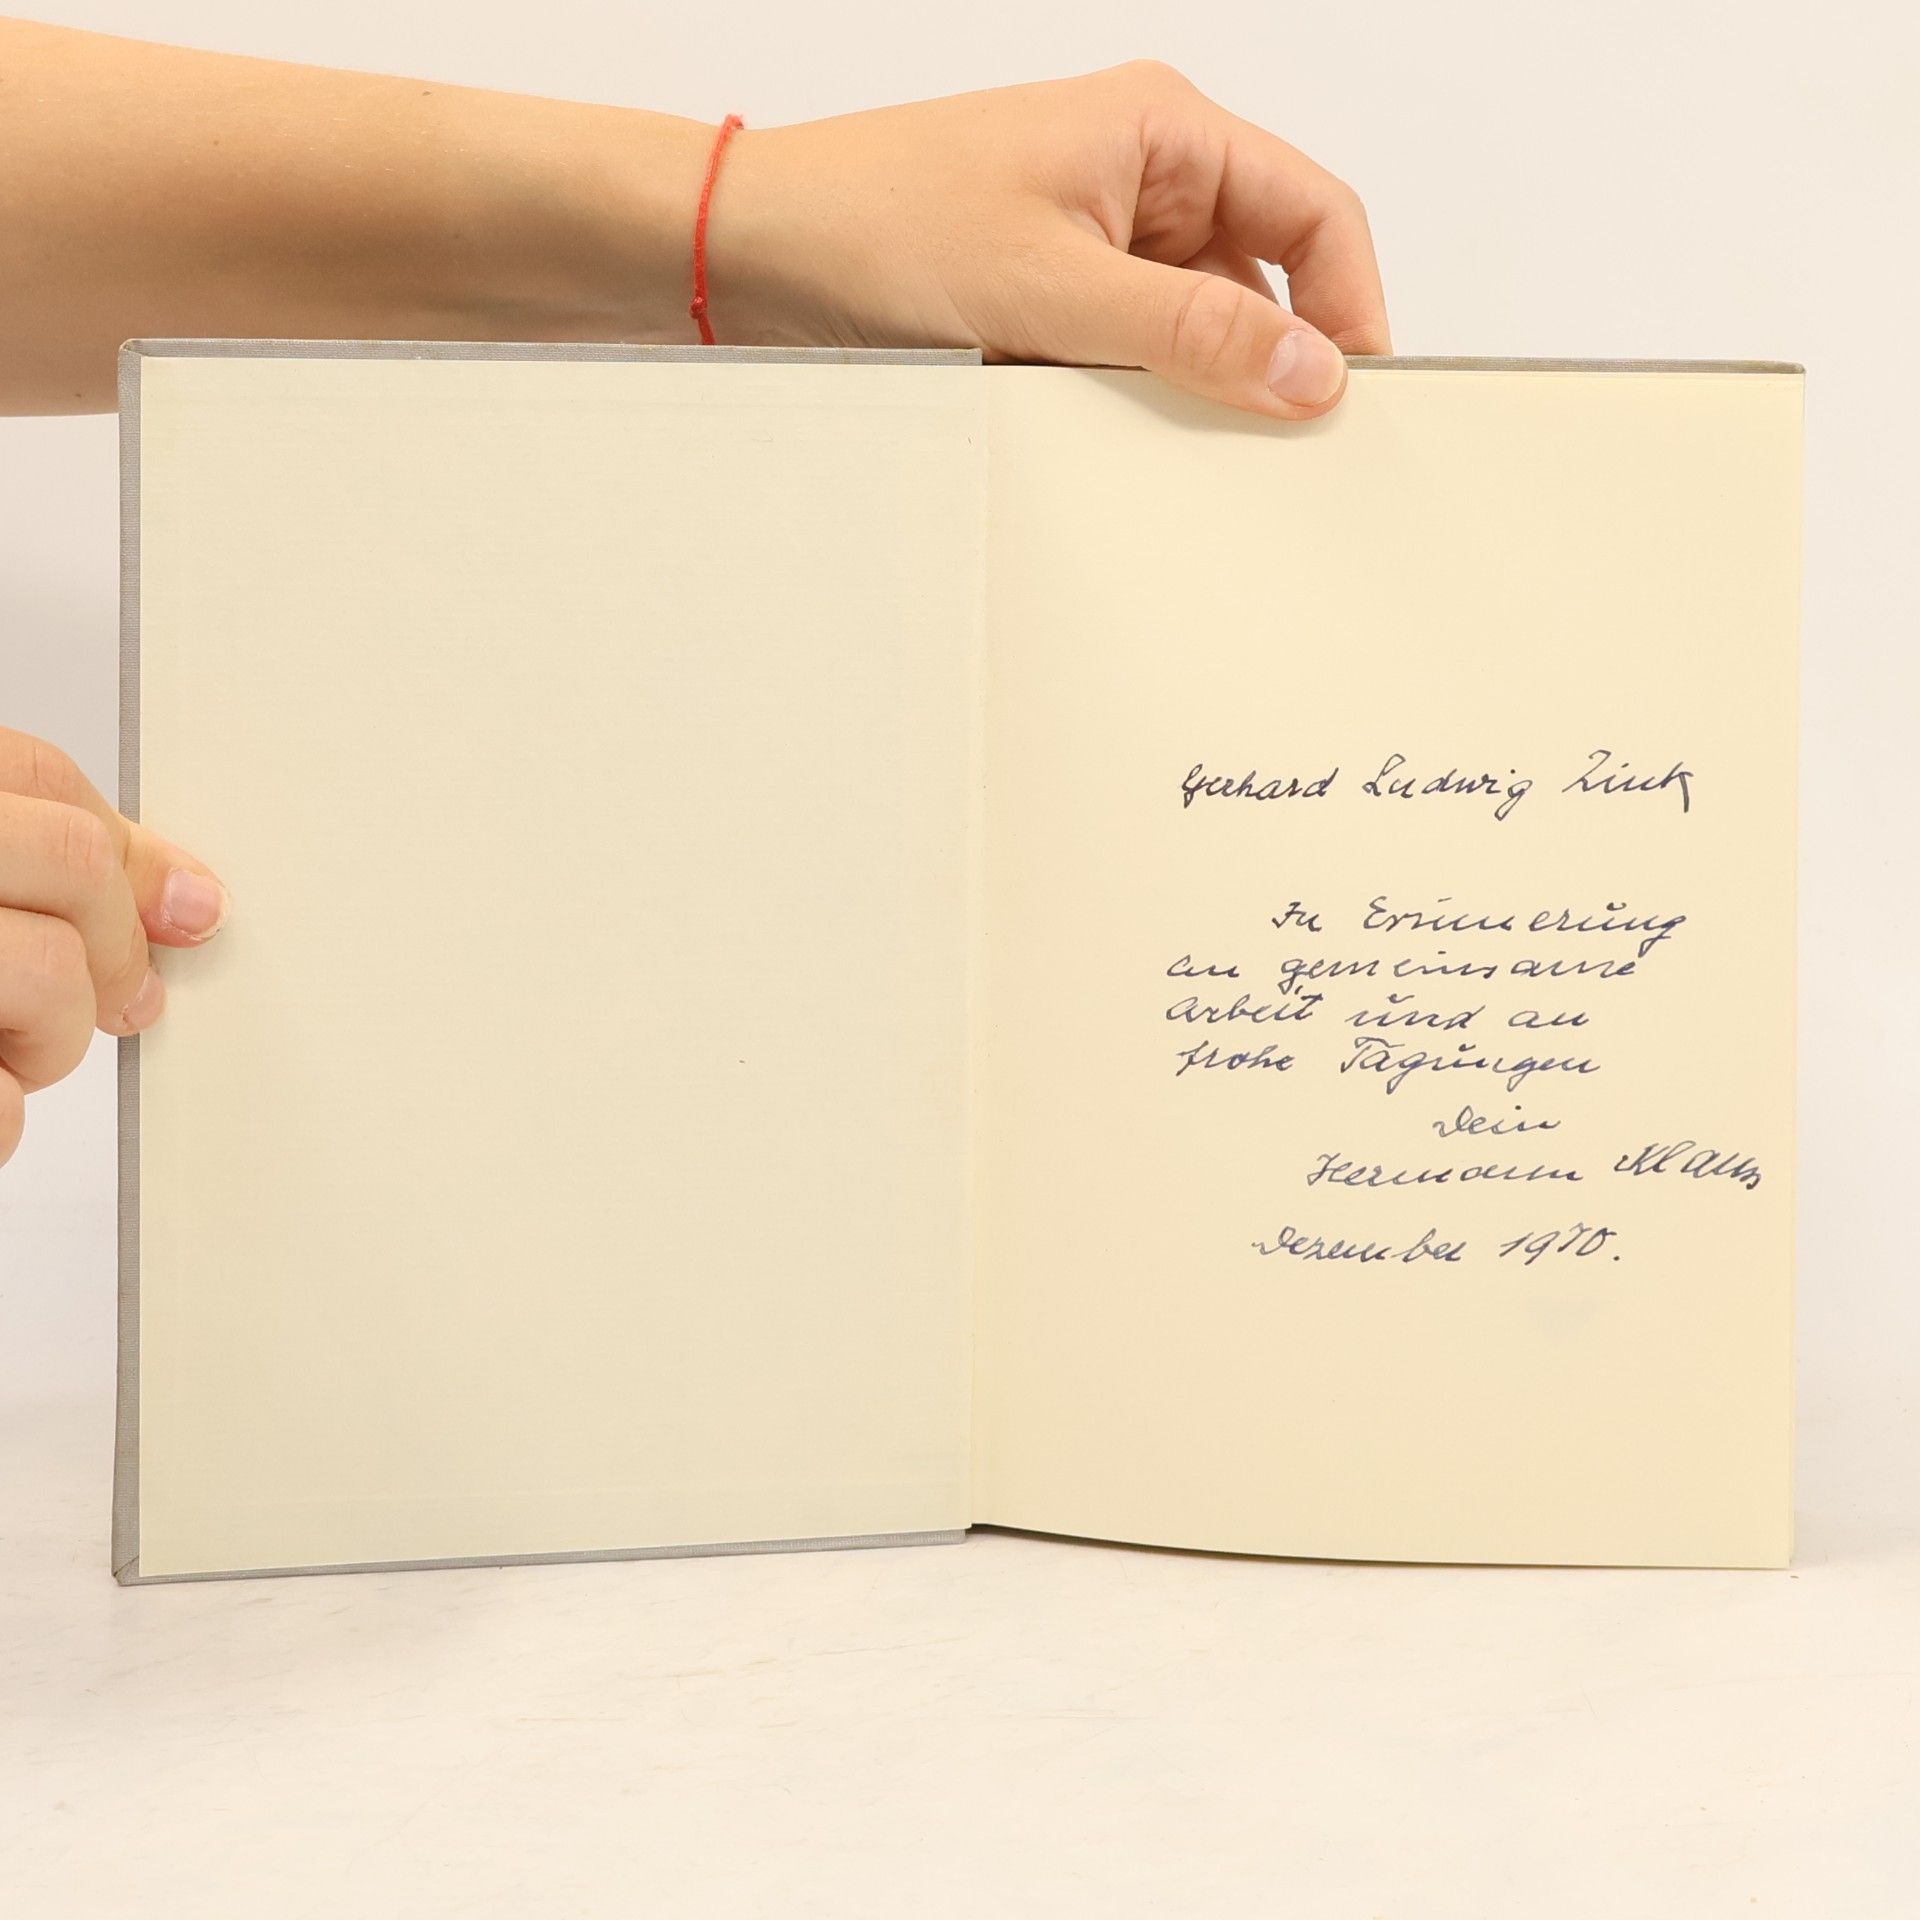 Gerhard Ludwig Zink
In Erinnerung
an gemeinsame
Arbeit und an
frohe Tagungen
Dein
Hermann Klauss
Dezember 1970.